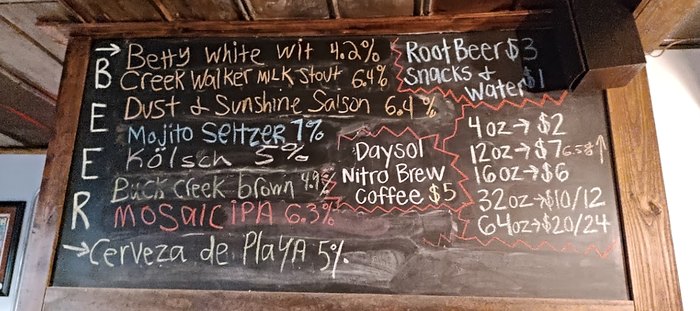 BEER
→ Betty White Wit 4.2%
Creek Walker Milk Stout 6.4%
Dust & Sunshine Saison 6.4%
Mojito Seltzer 7%
Kölsch 5%
Buck Creek Brown 4.9%
MOSAIC IPA 6.3%
→ Cerveza de PlaYA 5%
Root Beer $3
Snacks &
Water $1
Daysol
Nitro Brew
Coffee $5
4oz → $2
12oz → $7 6.5% ↑
16oz → $6
32oz → $10/12
64oz → $20/24